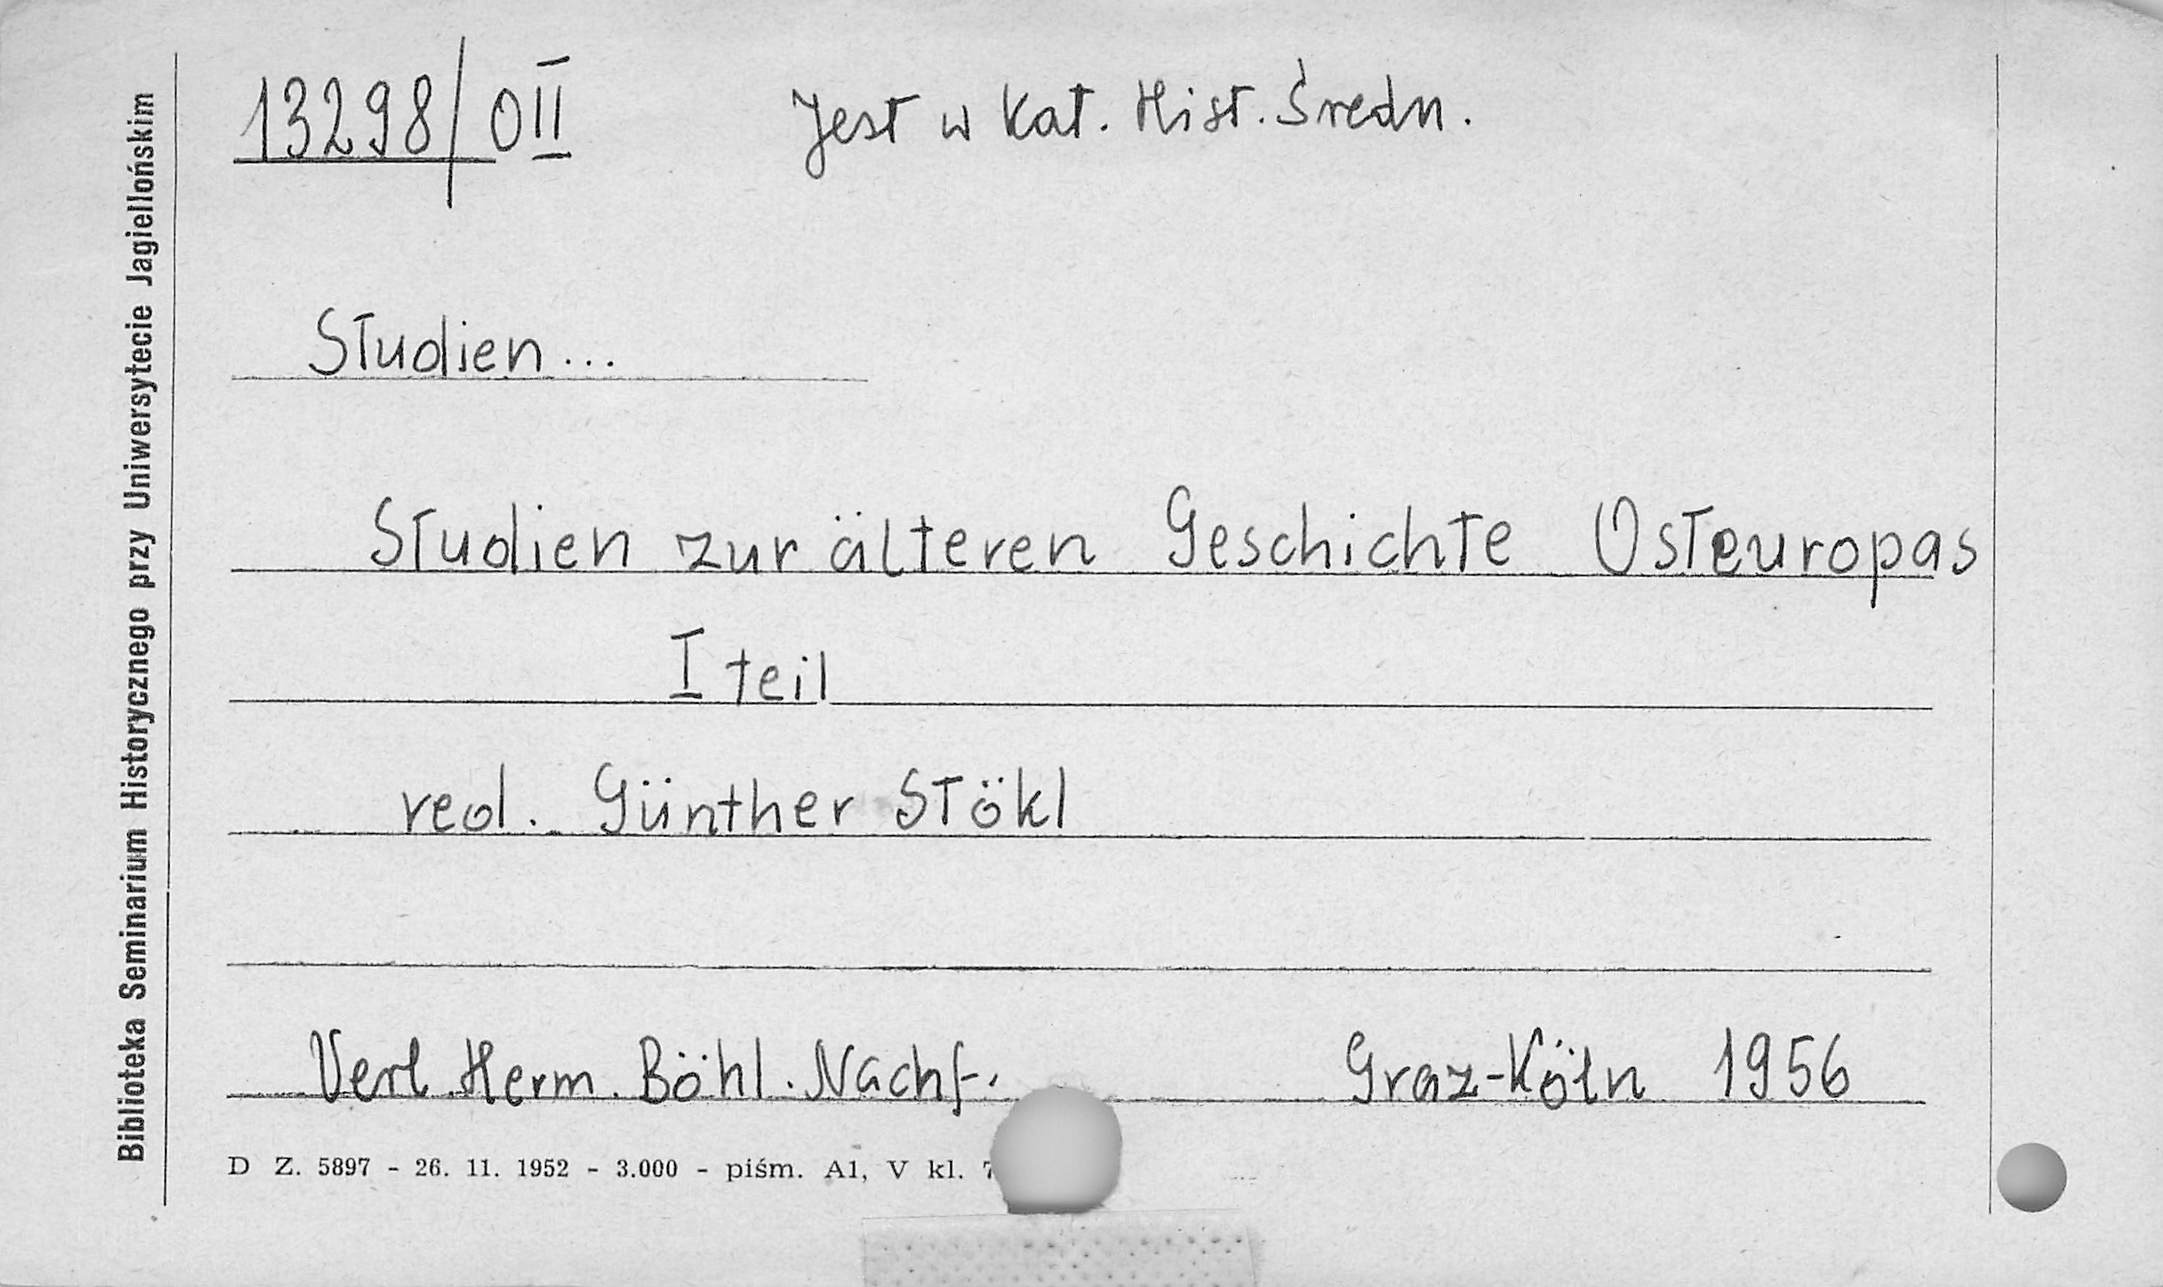 13298/OII
Jest w Kat. Hist. Średn.
Studien...
Studien zur älteren Geschichte Osteuropas
I teil
red. Günther Stökl
Verl. Herm. Böhl. Nachf.
Graz-Köln 1956
D Z. 5897 - 26. 11. 1952 - 3.000 - piśm. A1, V kl.
Biblioteka Seminarium Historycznego przy Uniwersytecie Jagiellońskim